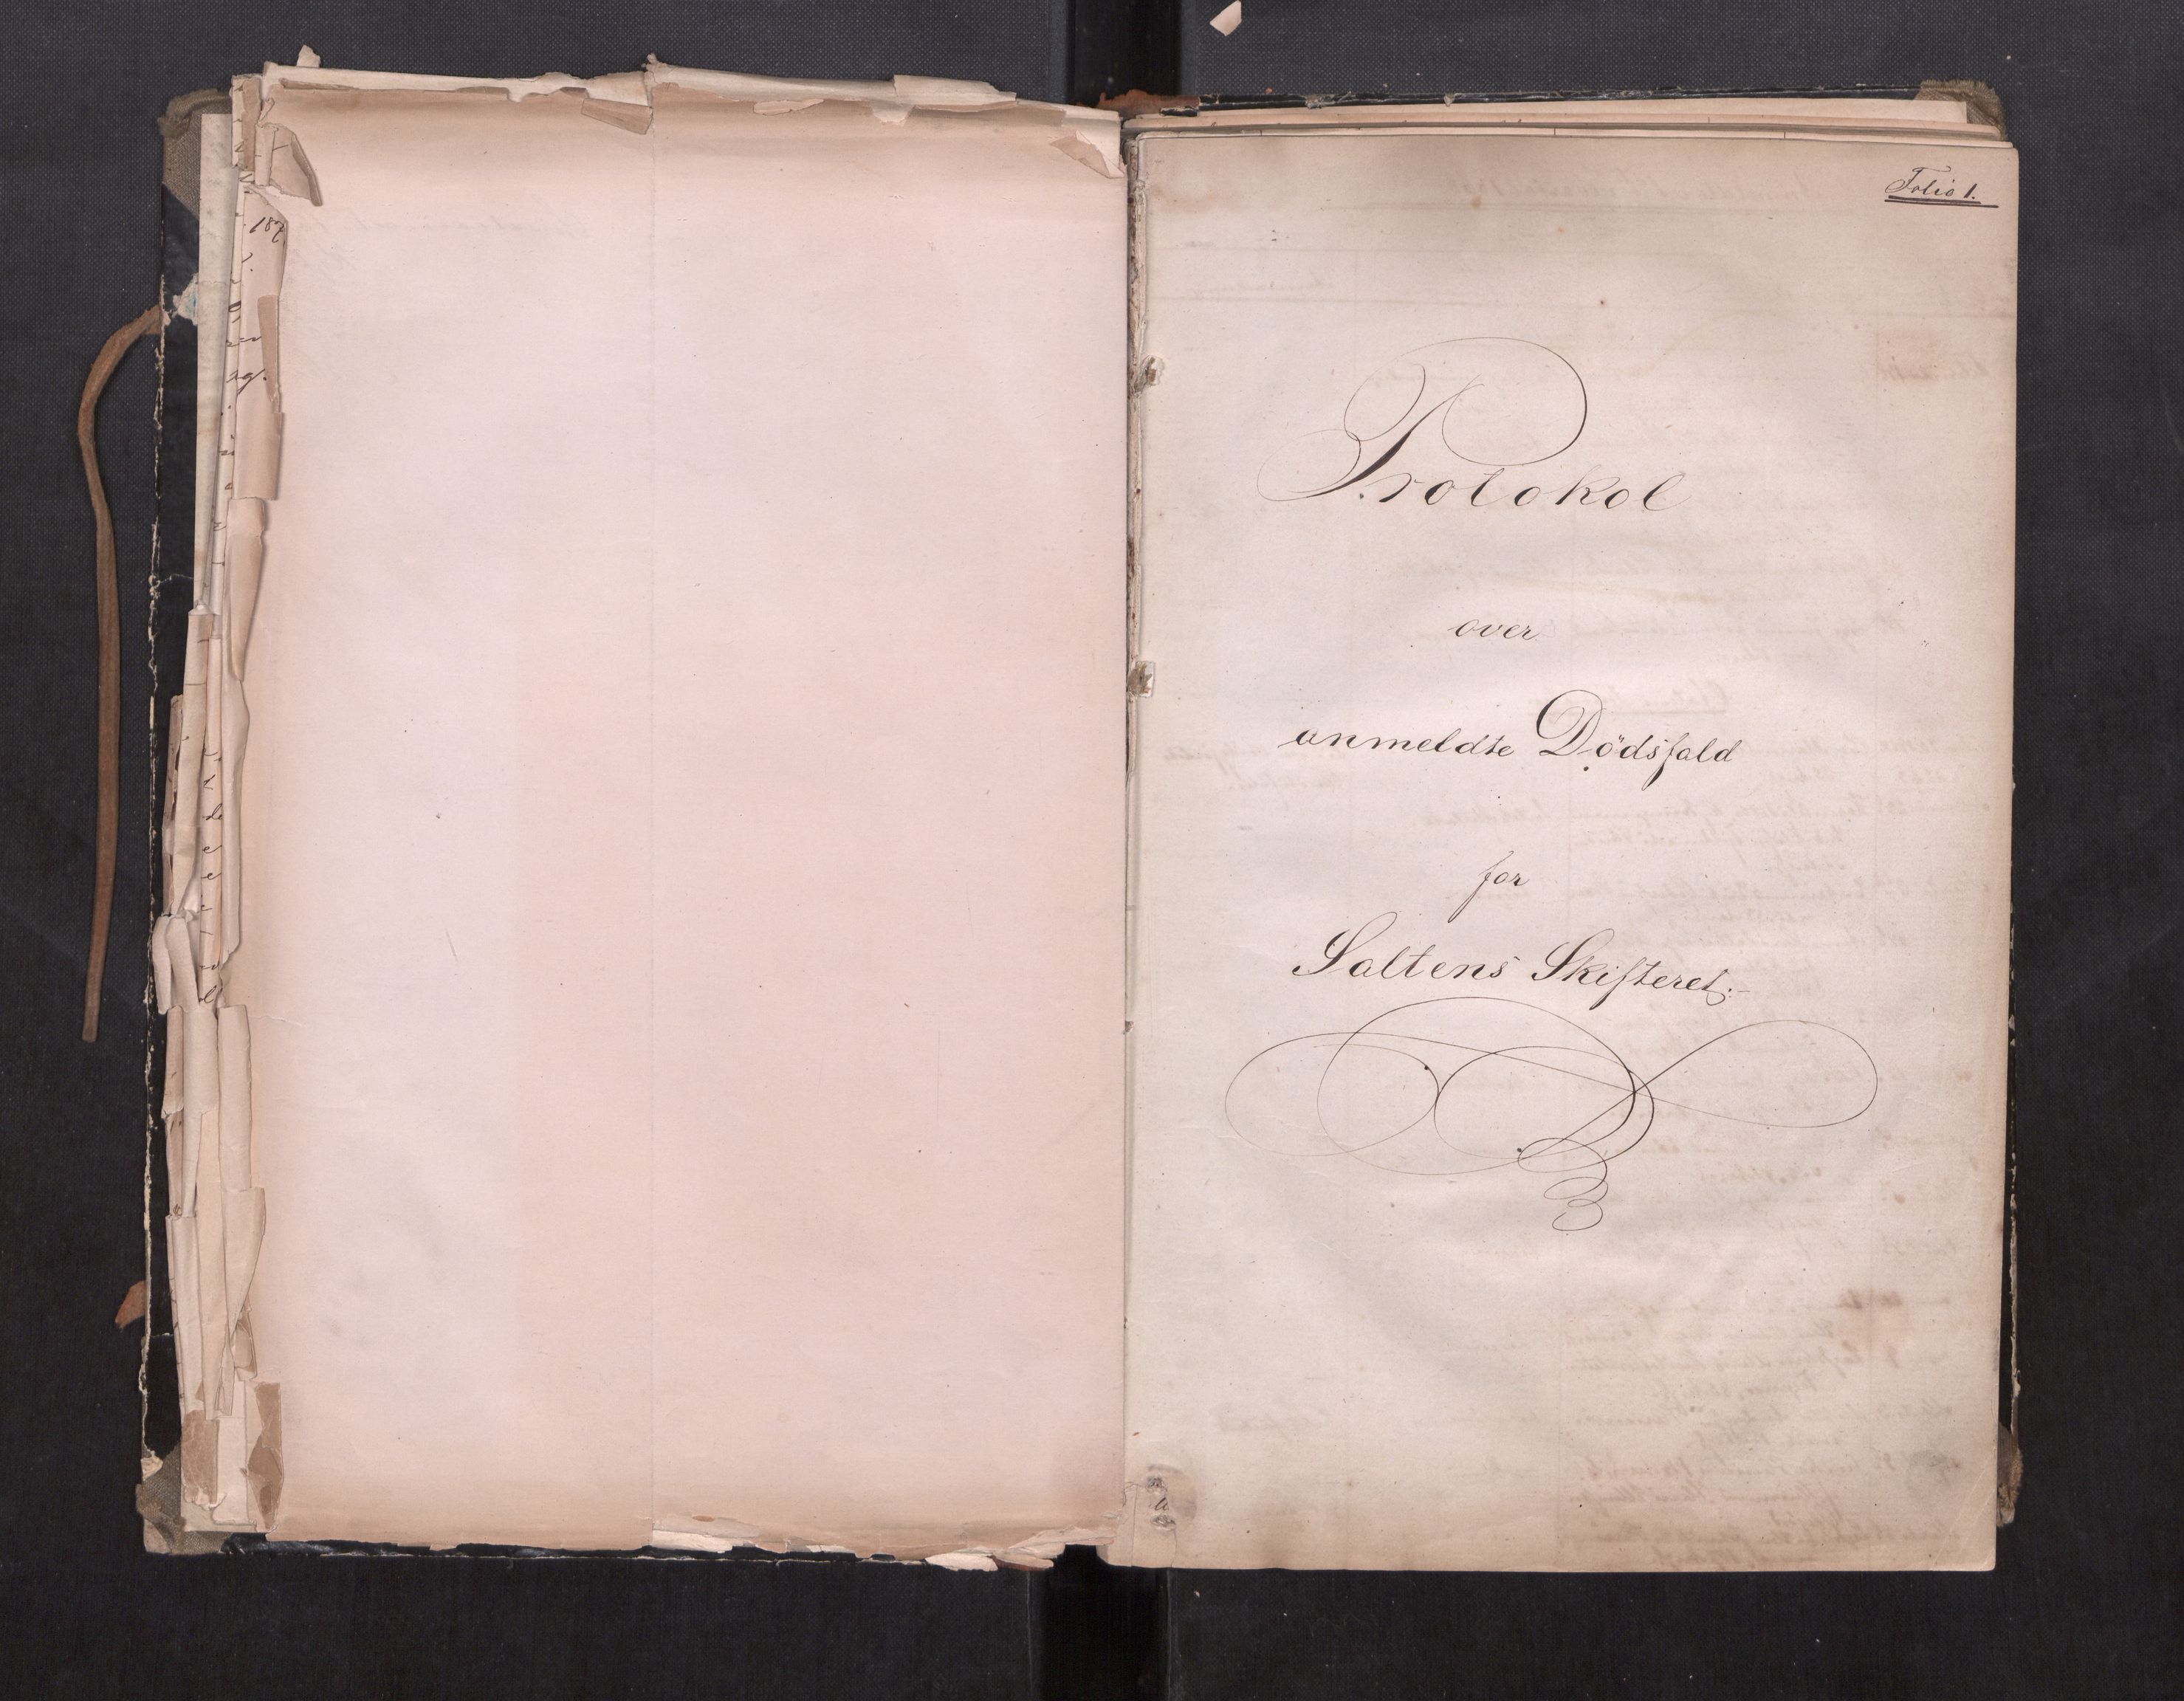 Folio 1.
Protokol
over
anmeldte Dödsfald
for
Saltens Skifteret:-
187